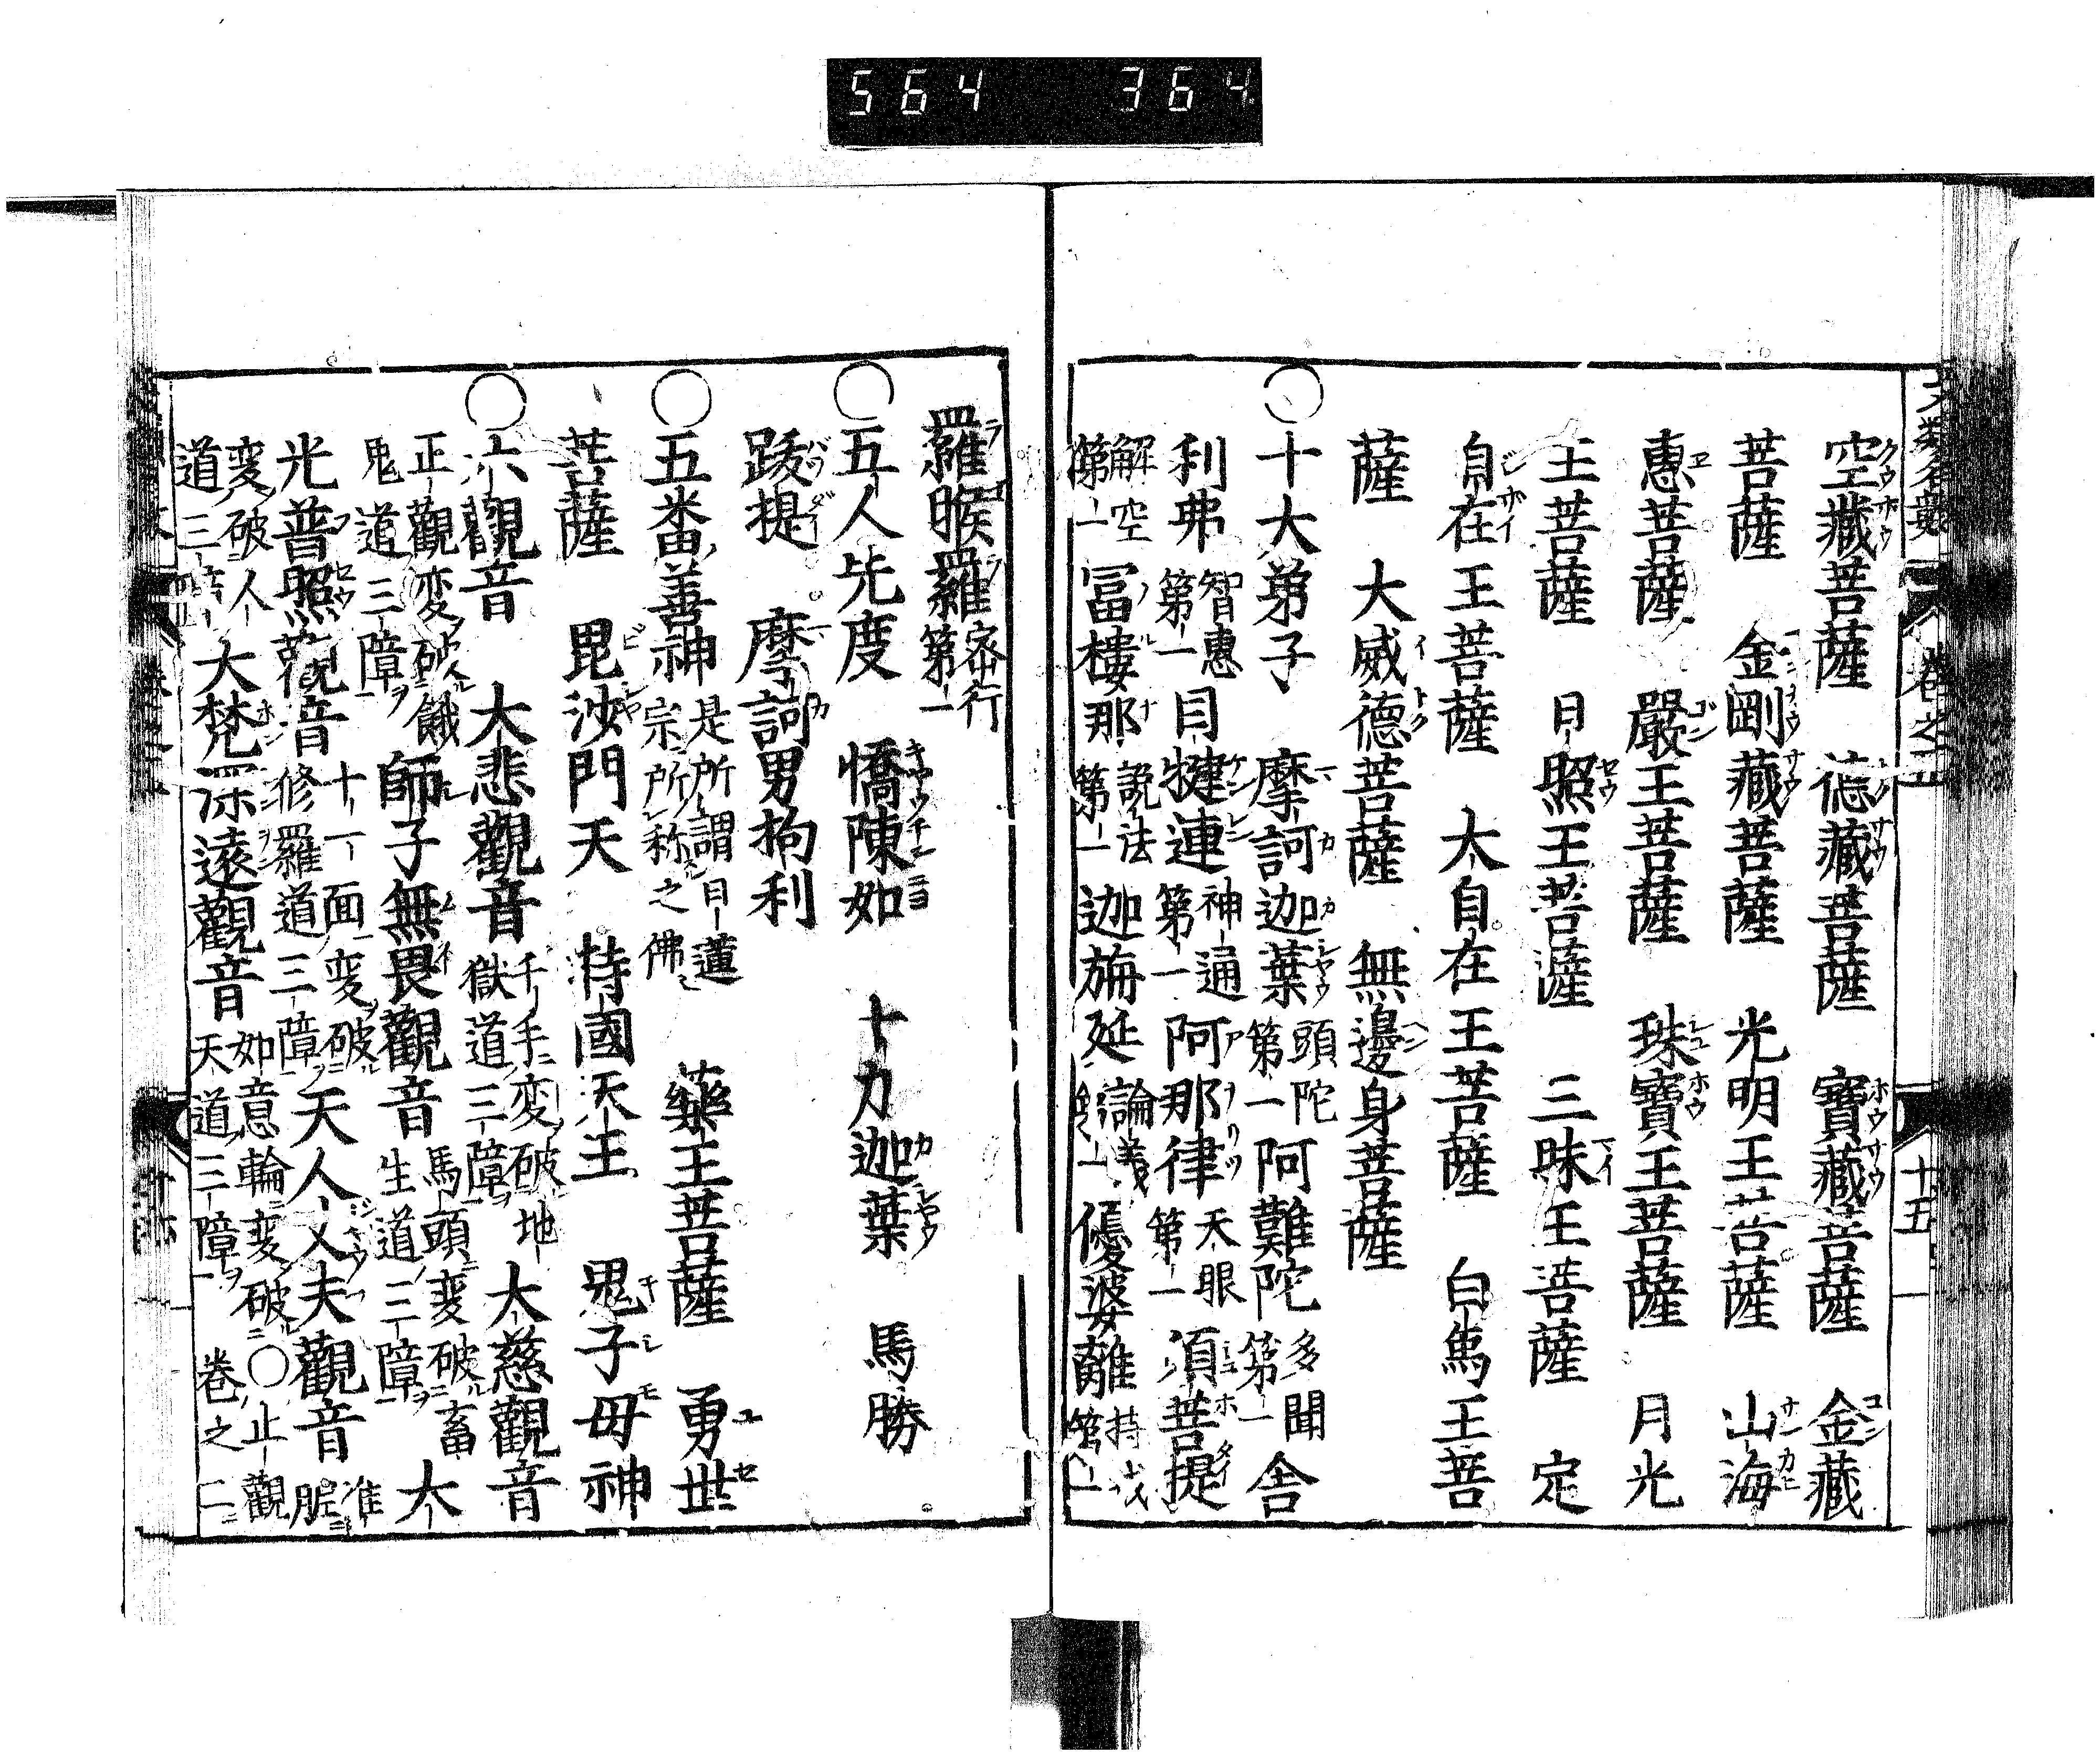 564 364
空藏菩薩　徳藏菩薩　寶藏菩薩　金藏
菩薩　金剛藏菩薩　光明王菩薩　山海
惠菩薩　嚴王菩薩　珠寶王菩薩　月光
王菩薩　日照王菩薩　三昧王菩薩　定
自在王菩薩　大自在王菩薩　白象王菩
薩　大威德菩薩　無邊身菩薩
○十大弟子　摩訶迦葉頭陀第一阿難陀多聞第一舍
利弗智惠第一目犍連神通第一阿那律天眼第一須菩提
解空第一冨樓那説法第一迦旃延論義第一優婆離持戒第一
卷之二 十五
羅睺羅密行第一
○五人先度　憍陳如　十力迦葉　馬勝
跋提　摩訶男拘利
○五番善神是所謂日蓮宗所称之佛　藥王菩薩　勇世
菩薩　毘沙門天　持國天王　鬼子母神
○六觀音　大悲觀音千手変破地獄道三障　大慈觀音
正觀変破餓鬼道三障　師子無畏觀音馬頭変破畜生道三障　大
光普照觀音十一面変破修羅道三障天人丈夫觀音准胝
変破人道三障　大梵深遠觀音如意輪変破天道三障○止觀卷之二